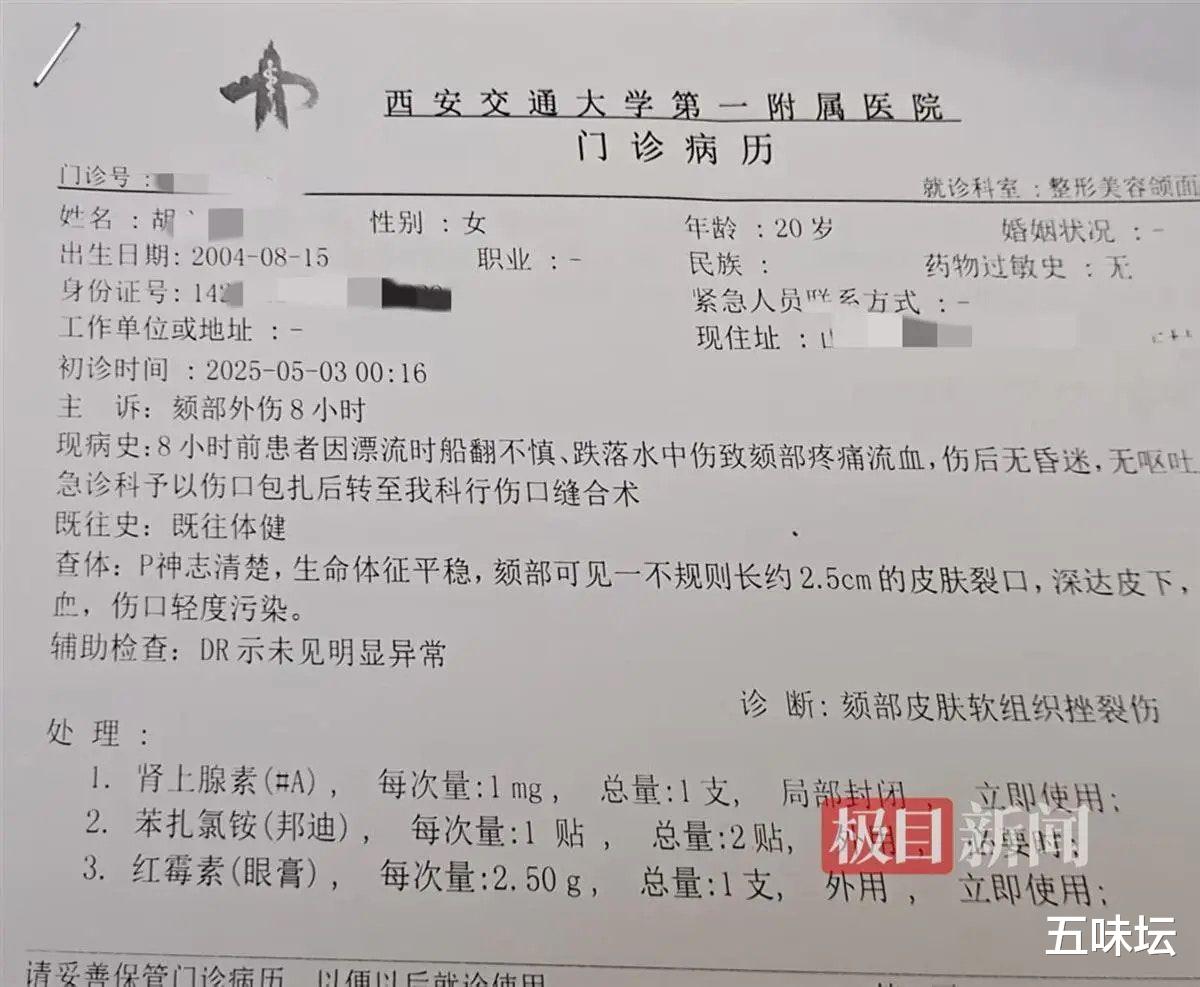 西安交通大学第一附属医院
门诊病历
门诊号: 就诊科室:整形美容颌面
姓名:胡 性别:女 年龄:20岁 婚姻状况:-
出生日期:2004-08-15 职业:- 民族: 药物过敏史:无
身份证号:142 紧急人员联系方式:-
工作单位或地址:- 现住址:
初诊时间:2025-05-03 00:16
主 诉: 颏部外伤8小时
现病史:8小时前患者因漂流时船翻不慎、跌落水中伤致颏部疼痛流血,伤后无昏迷,无呕吐
急诊科予以伤口包扎后转至我科行伤口缝合术
既往史: 既往体健
查体: P神志清楚,生命体征平稳,颏部可见一不规则长约2.5cm的皮肤裂口,深达皮下,
血,伤口轻度污染。
辅助检查: DR示未见明显异常
诊 断: 颏部皮肤软组织挫裂伤
处 理:
1. 肾上腺素(#A), 每次量:1mg, 总量:1支, 局部封闭, 立即使用;
2. 苯扎氯铵(邦迪), 每次量:1 贴, 总量:2贴, 外用, 必要时;
3. 红霉素(眼膏), 每次量:2.50g, 总量:1支, 外用, 立即使用;
极目新闻
五味坛
请妥善保管门诊病历,以便以后就诊使用